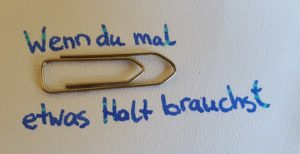 Wenn du mal
etwas Halt brauchst